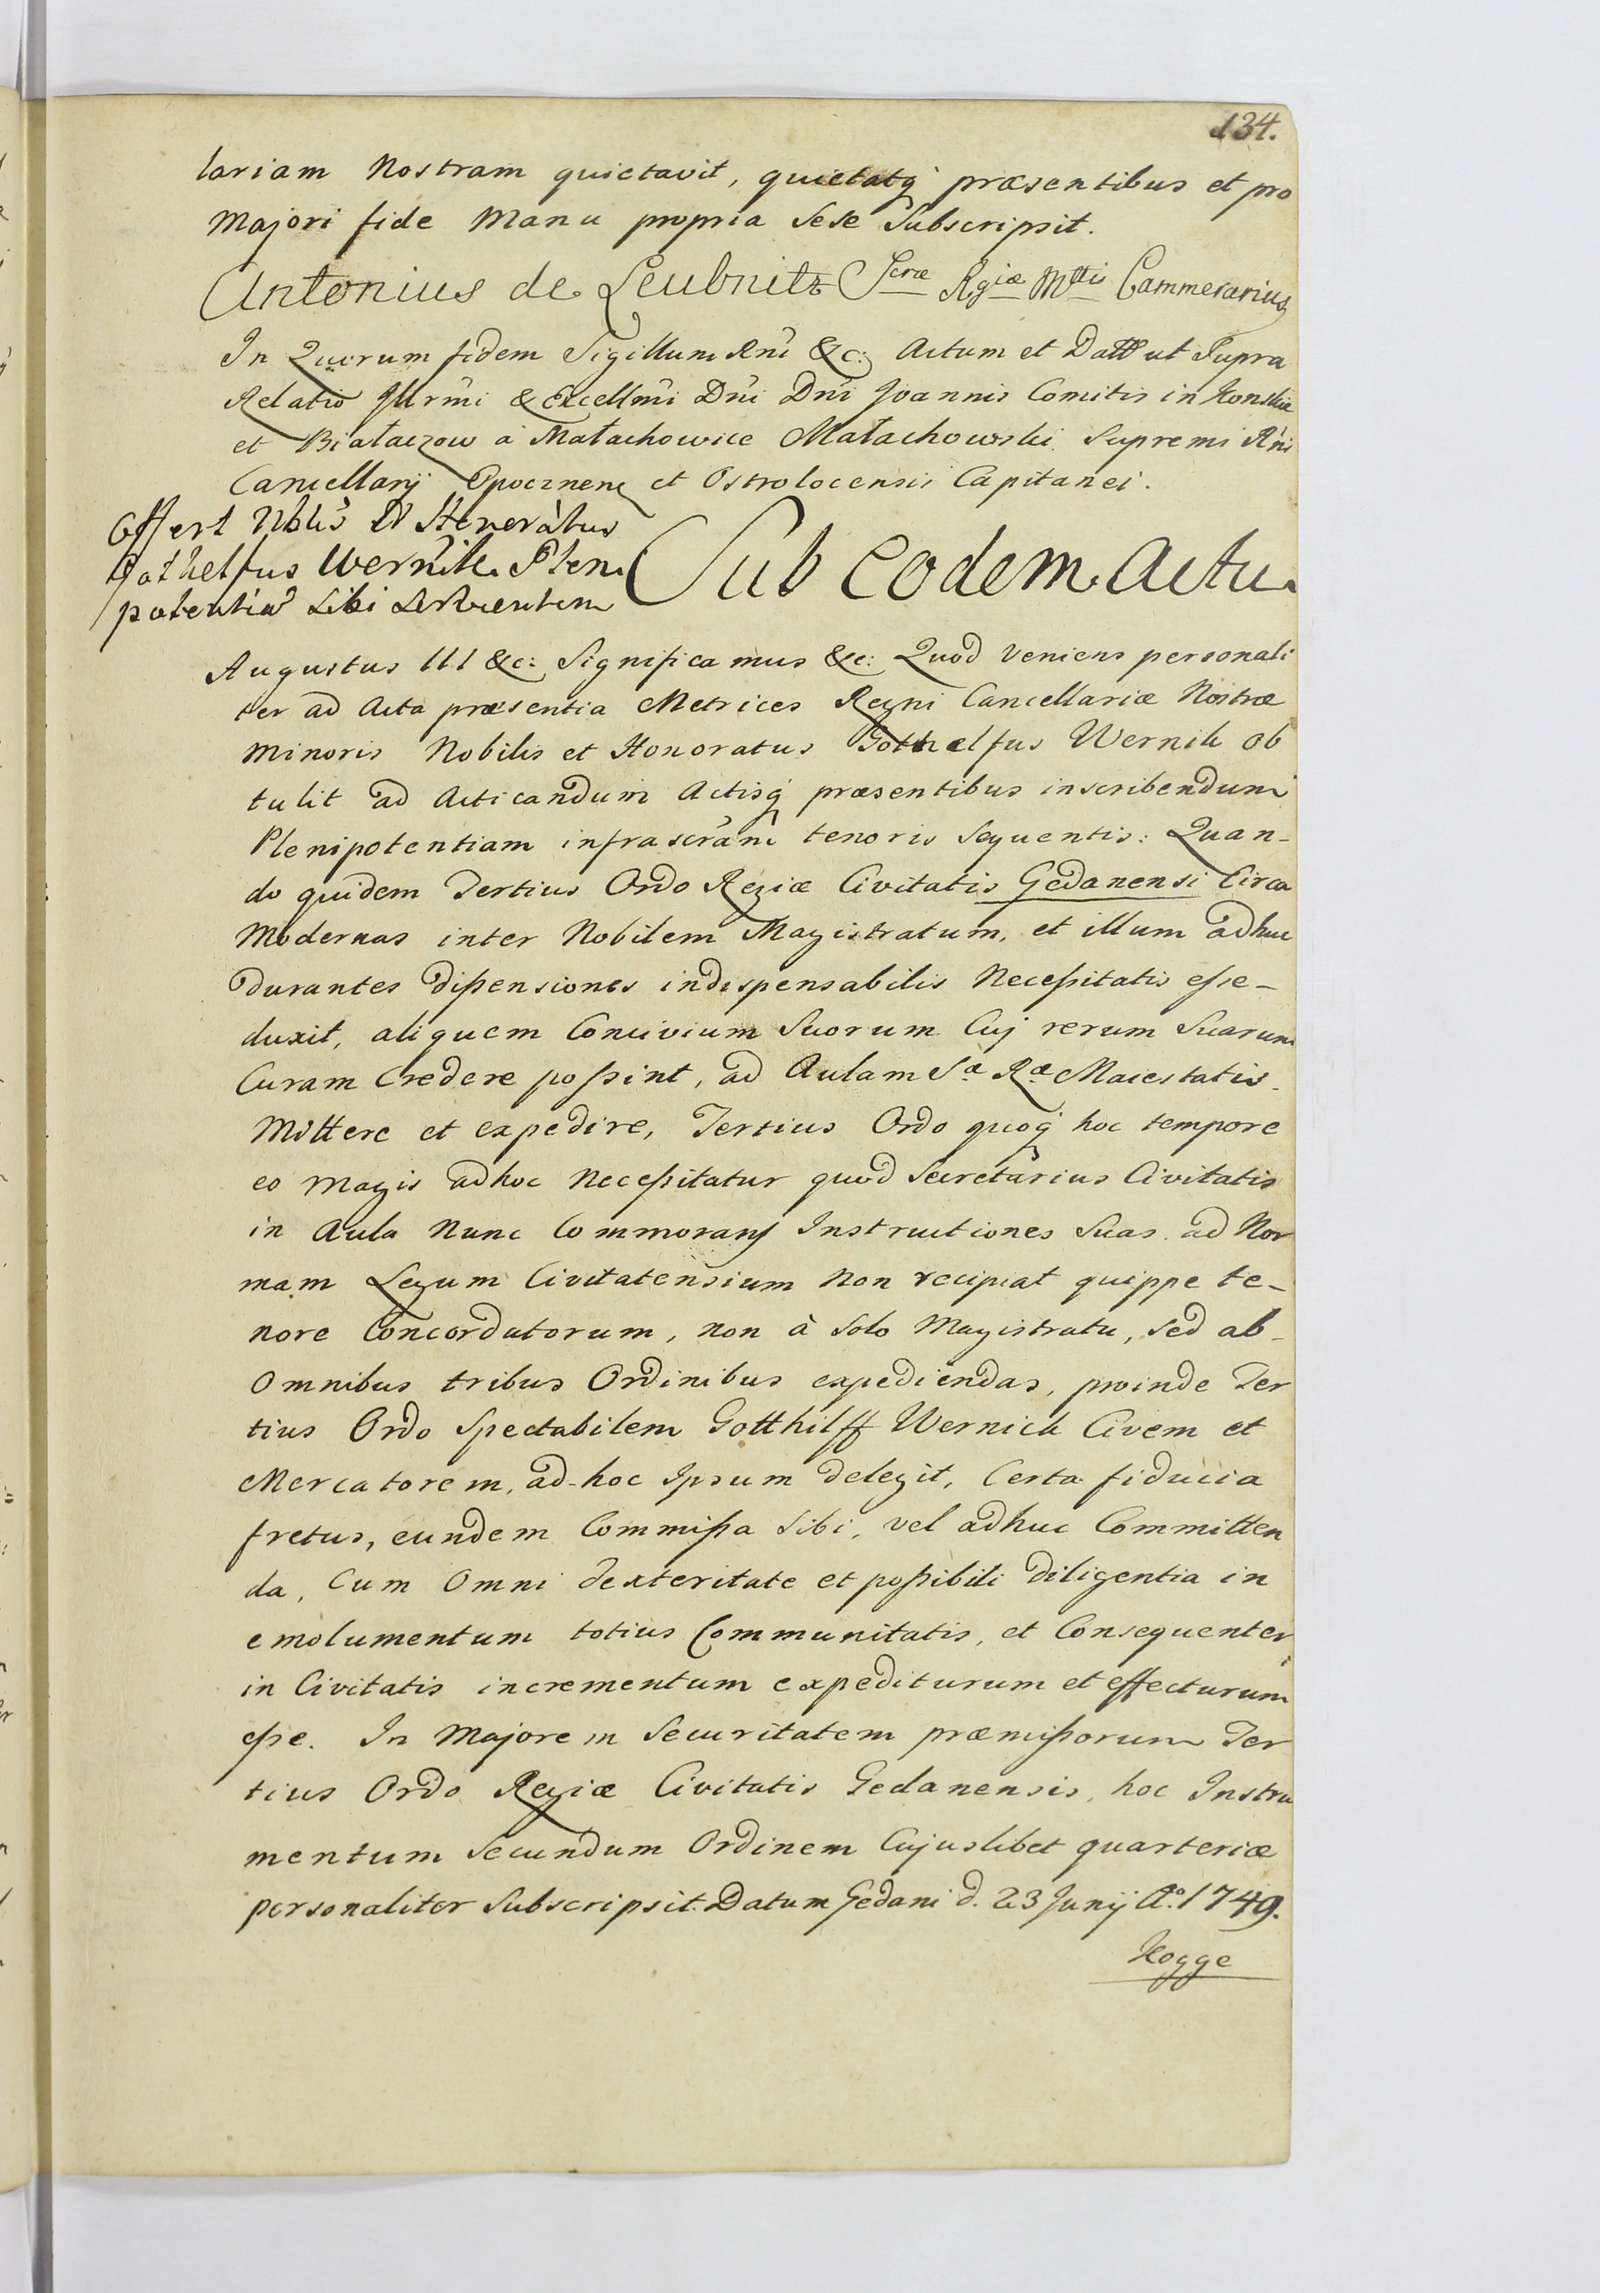 134.
lariam Nostram quietavit, quietatq præsentibus et pro
Majori fide Manu propria Sese Subscripsit.
Antonius de Leubnitz Scræ Rgiæ Mttis Cammerarius
In Quorum fidem Sigillum Rni &c: Actum et Datt ut Supra
Relatio Illrmi & Excellmi Dni Dni Joannis Comitis in Konskie
et Białaczow à Małachowice Małachowski Supremi Rni
Cancellarij Opocznen et Ostrolocensis Capitanei.
Offert Nblis et Honeratus
Gothelfus Wernik Plen
potentia Sibi Servientem
Sub eodem Actu
Augustus III &c: Significamus &c: Quod Veniens personali
ter ad Acta præsentia Metrices Regni Cancellariæ Nostræ
Minoris Nobilis et Honoratus Gothelfus Wernik ob
tulit ad Acticandum Actisq præsentibus inscribendum
Plenipotentiam infrascram tenoris Sequentis: Quan-
do quidem Tertius Ordo Regiæ Civitatis Gedanensi Circa
Modernas inter Nobilem Magistratum, et illum adhuc
durantes dißensiones indispensabilis Neceßitatis eße-
duxit, aliquem Concivium Suorum Cuj rerum Suarum
Curam Credere poßint, ad Aulam Sæ Ræ Maiestatis
Mittere et expedire, Tertius Ordo quoq hoc tempore
eo Magis adhoc Neceßitatur quod Secretarius Civitatis
in Aula Nunc Commorans Instructiones Suas ad Nor
mam Legum Civitatensium Non recipiat quippe te-
nore Concordatorum, non à Solo Magistratu, sed ab-
Omnibus tribus Ordinibus expediendas, proinde Ter
tius Ordo Spectabilem Gotthilff Wernick Civem et
Mercatorem, ad-hoc Ipsum delegit, Certa fiducia
fretus, eundem Commißa Sibi, vel adhuc Committen
da, Cum Omni dexteritate et poßibili diligentia in
emolumentum totius Communitatis, et Consequenter
in Civitatis incrementum expediturum et effecturum
eße. In Majorem Securitatem præmißorum Ter
tius Ordo Regiæ Civitatis Gedanensis, hoc Instru
mentum Secundum Ordinem Cujuslibet quarteriæ
personaliter Subscripsit. Datum Gedani d. 23 Junij Ao. 1749.
Kogge